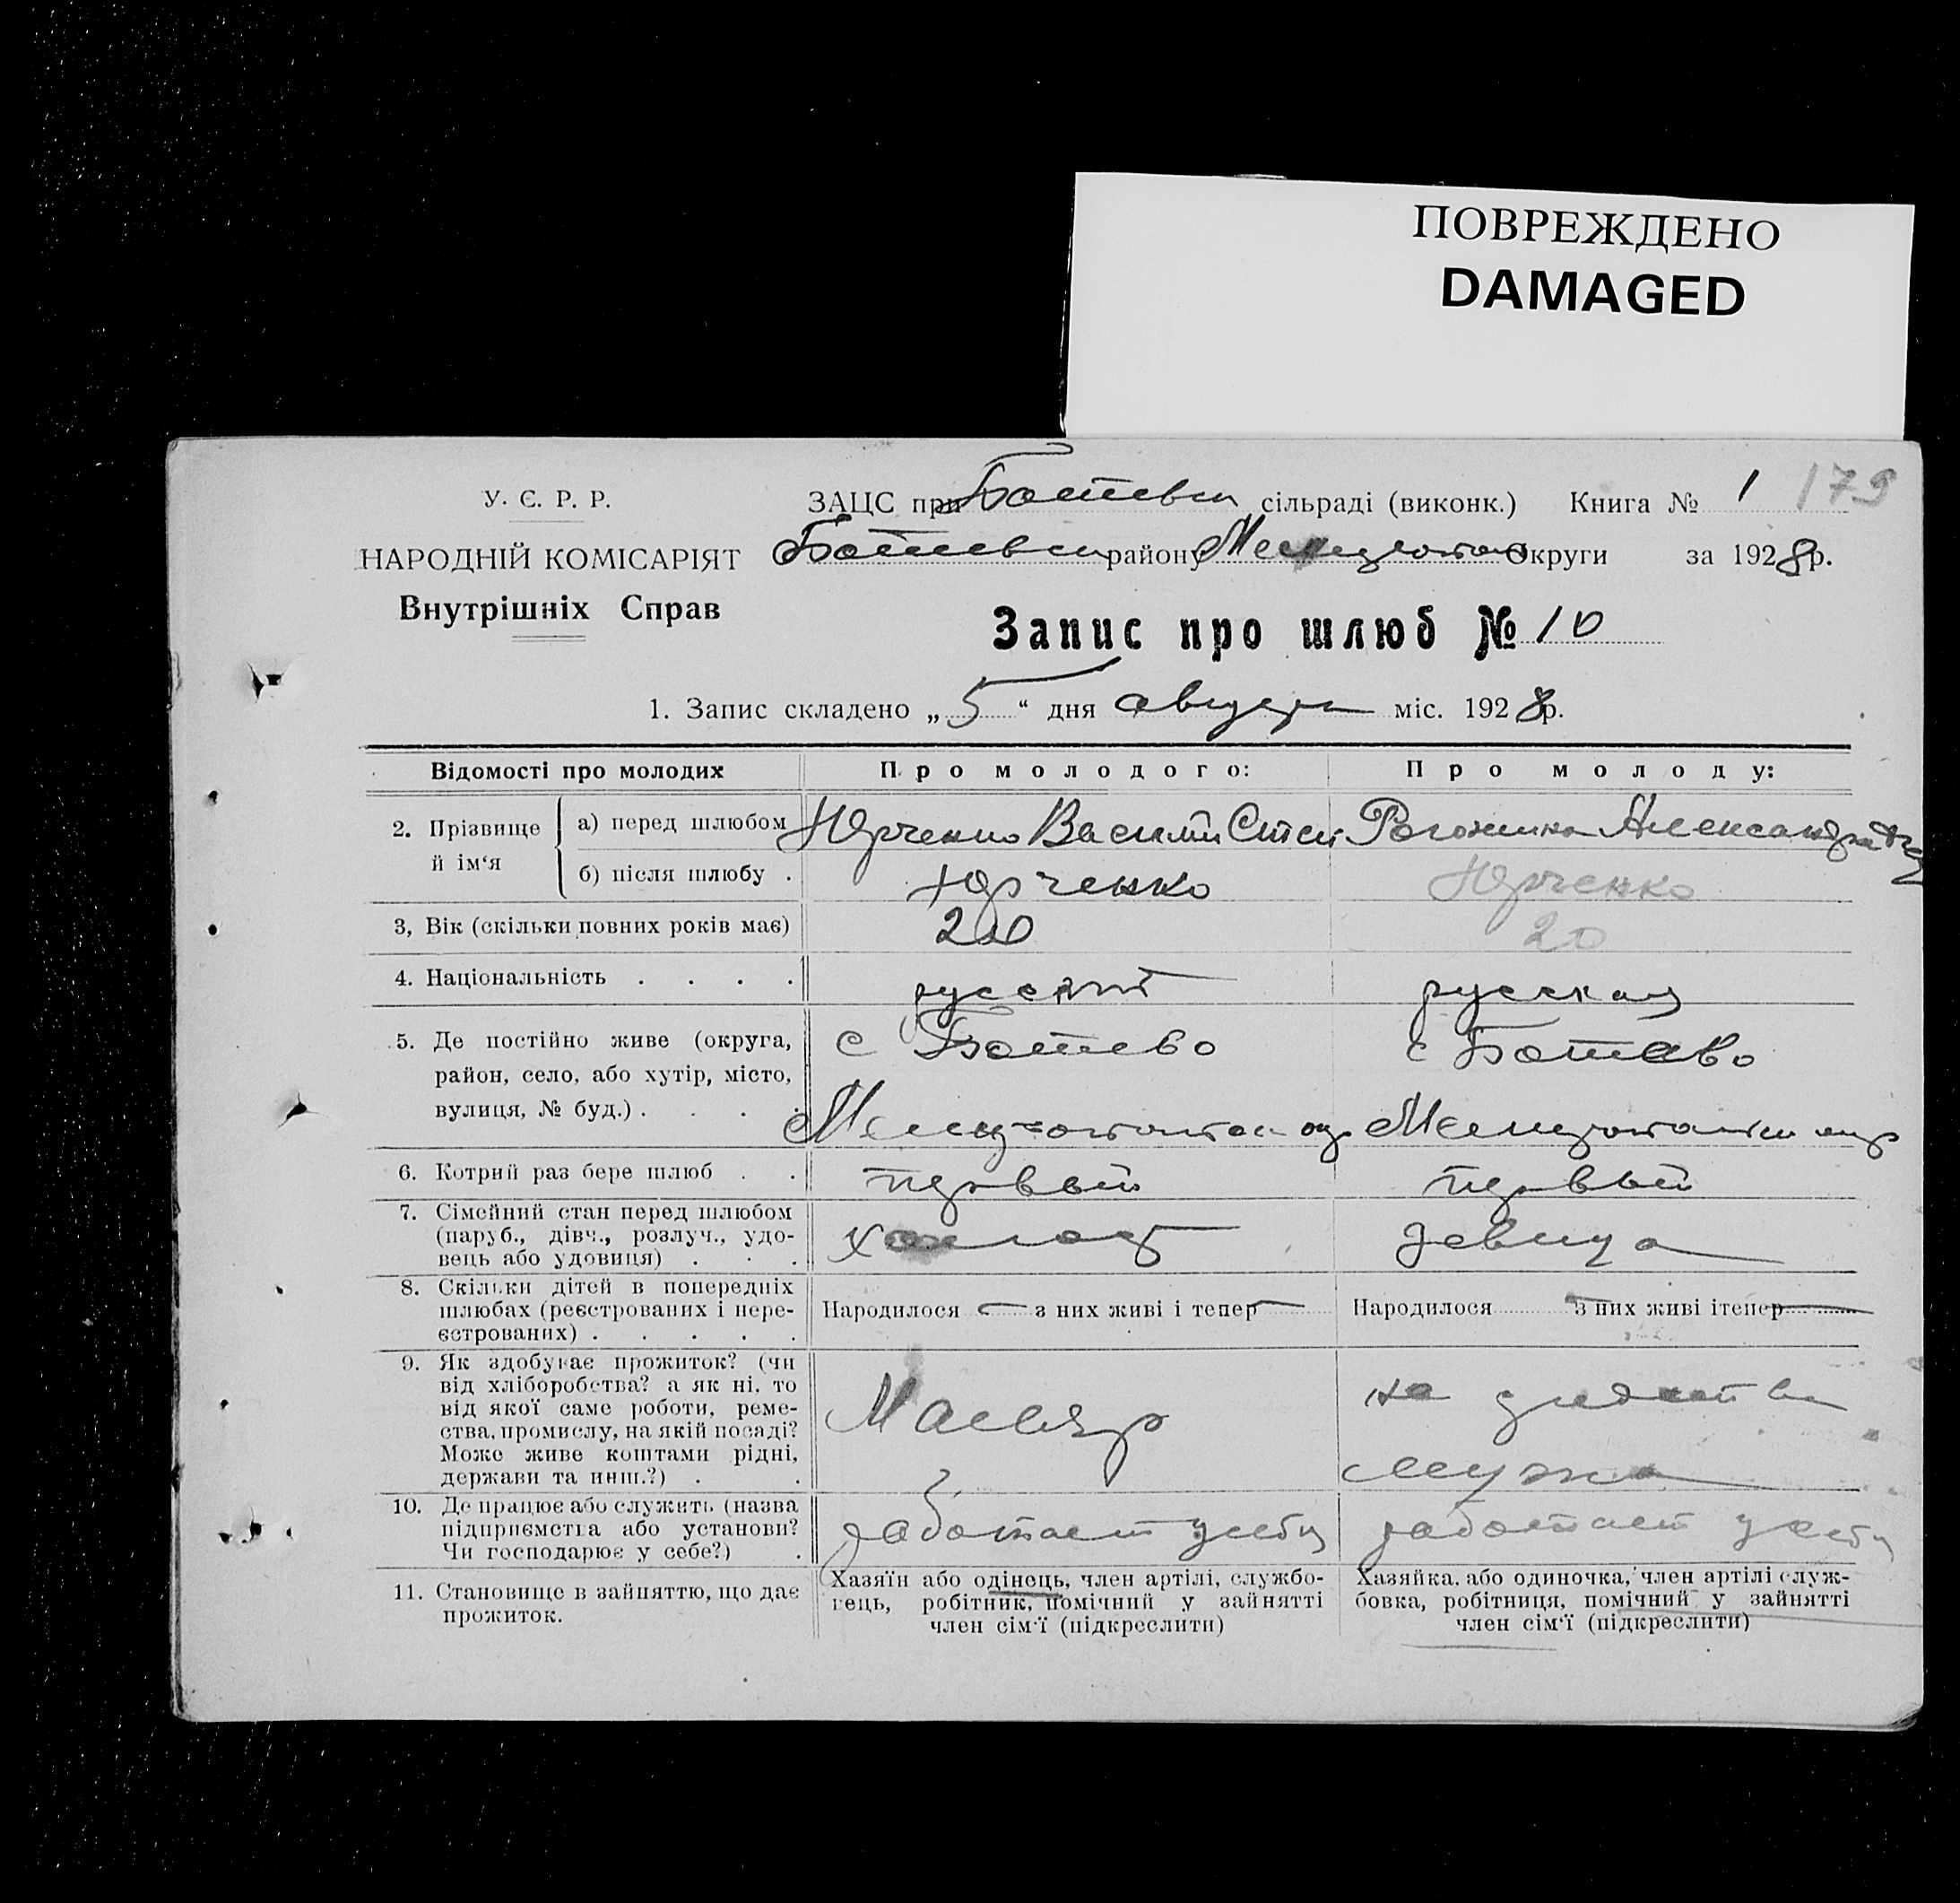 ПОВРЕЖДЕНО
DAMAGED
У. Є. Р. Р.
НАРОДНІЙ КОМІСАРІЯТ
Внутрішніх Справ
ЗАЦС при Ботевск сільраді (виконк.) Книга № 1 179
Ботевск району округи за 1928 р.
Запис про шлюб № 10
1. Запис складено „ 5 “ дня августа міс. 1928 р.
Відомості про молодих
Про молодого:
Про молоду:
2. Прізвище й ім‘я
а) перед шлюбом
Юрченко Василий Степ
Рогожина Александра
б) після шлюбу .
Юрченко
Юрченко
3, Вік (скільки повних років має)
20
20
4. Національність . . . .
русский
русская
5. Де постійно живе (округа,
район, село, або хутір, місто,
вулиця, № буд.) . . . .
с Ботево
с Ботево
6. Котрий раз бере шлюб . .
первый
первый
7. Сімейний стан перед шлюбом
(паруб., дівч., розлуч., удо-
вець або удовиця) . . .
холост
девица
8. Скільки дітей в попередніх
шлюбах (реєстрованих і нере-
єстрованих) . . . . .
Народилося — з них живі і тепер —
Народилося з них живі ітепер —
9. Як здобуває прожиток? (чи
від хліборобства? а як ні, то
від якої саме роботи, реме-
ства, промислу, на якій посаді?
Може живе коштами рідні,
держави та инш.?) . .
Маляр
на средства
мужа
10. Де працює або служить (назва
підприємства або установи?
Чи господарює у себе?) .
работает у себя
работает у себя
11. Становище в зайняттю, що дає
прожиток.
Хазяїн або одінець, член артілі, службо-
вець, робітник, помічний у зайнятті
член сім‘ї (підкреслити)
Хазяйка, або одиночка, член артілі служ-
бовка, робітниця, помічний у зайнятті
член сім‘ї (підкреслити)